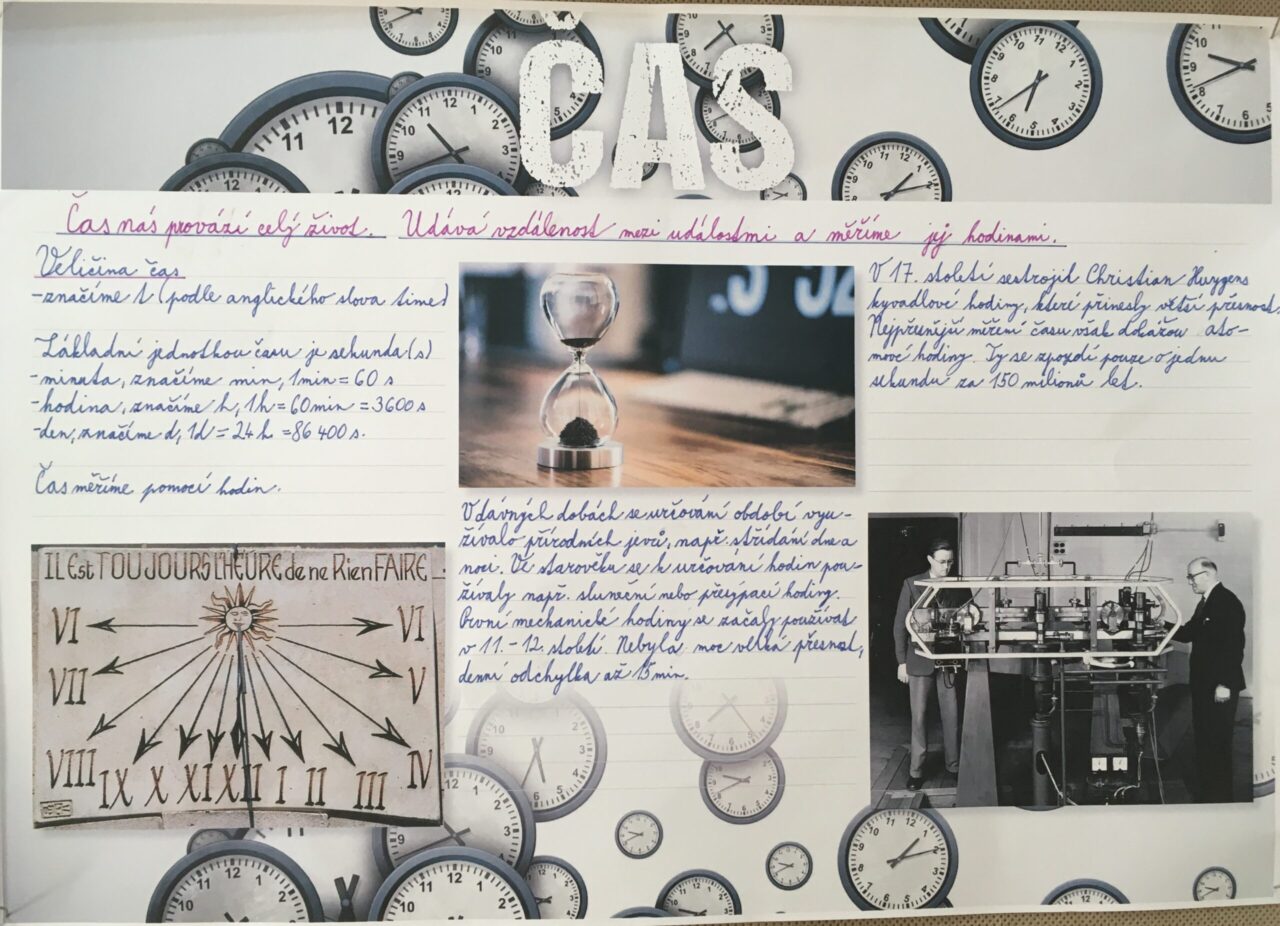 ČAS
Čas nás provází celý život. Udává vzdálenost mezi událostmi a měříme jej hodinami.
Veličina čas
-značíme t (podle anglického slova time)
Základní jednotkou času je sekunda (s)
-minuta, značíme min, 1 min = 60 s
-hodina, značíme h, 1 h = 60 min = 3600 s
-den, značíme d, 1d = 24 h = 86 400 s.
Čas měříme pomocí hodin.
IL Est TOUJOURS L'HEURE de ne Rien FAIRE
VI VI
VII V
VIII IX X XI XII I II III IV
V dávných dobách se určování období vyu-
žívalo přírodních jevů, např. střídání dne a
noci. Ve starověku se k určování hodin pou-
žívaly např. sluneční nebo přesýpací hodiny.
První mechanické hodiny se začaly používat
v 11. - 12. století. Nebyla moc velká přesnost,
denní odchylka až 15 min.
V 17. století sestrojil Christian Huygens
kyvadlové hodiny, které přinesly větší přesnost.
Nejpřesnější měření času však dokážou ato-
mové hodiny. Ty se zpozdí pouze o jednu
sekundu za 150 milionů let.